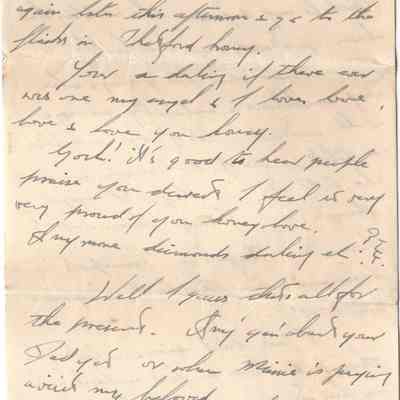 again later this afternoon & go to the
flicks in Thetford honey.
Your a darling if there ever
was one my angel & I love, love,
love & love you honey.
Gosh! it's good to hear people
praise you dearest I feel so very
very proud of you honey love.
Any more diamonds darling eh? ? ? &.
Well I guess that's all for
the present. Any gen about your
Dad yet or when Minnie is paying
a visit my beloved